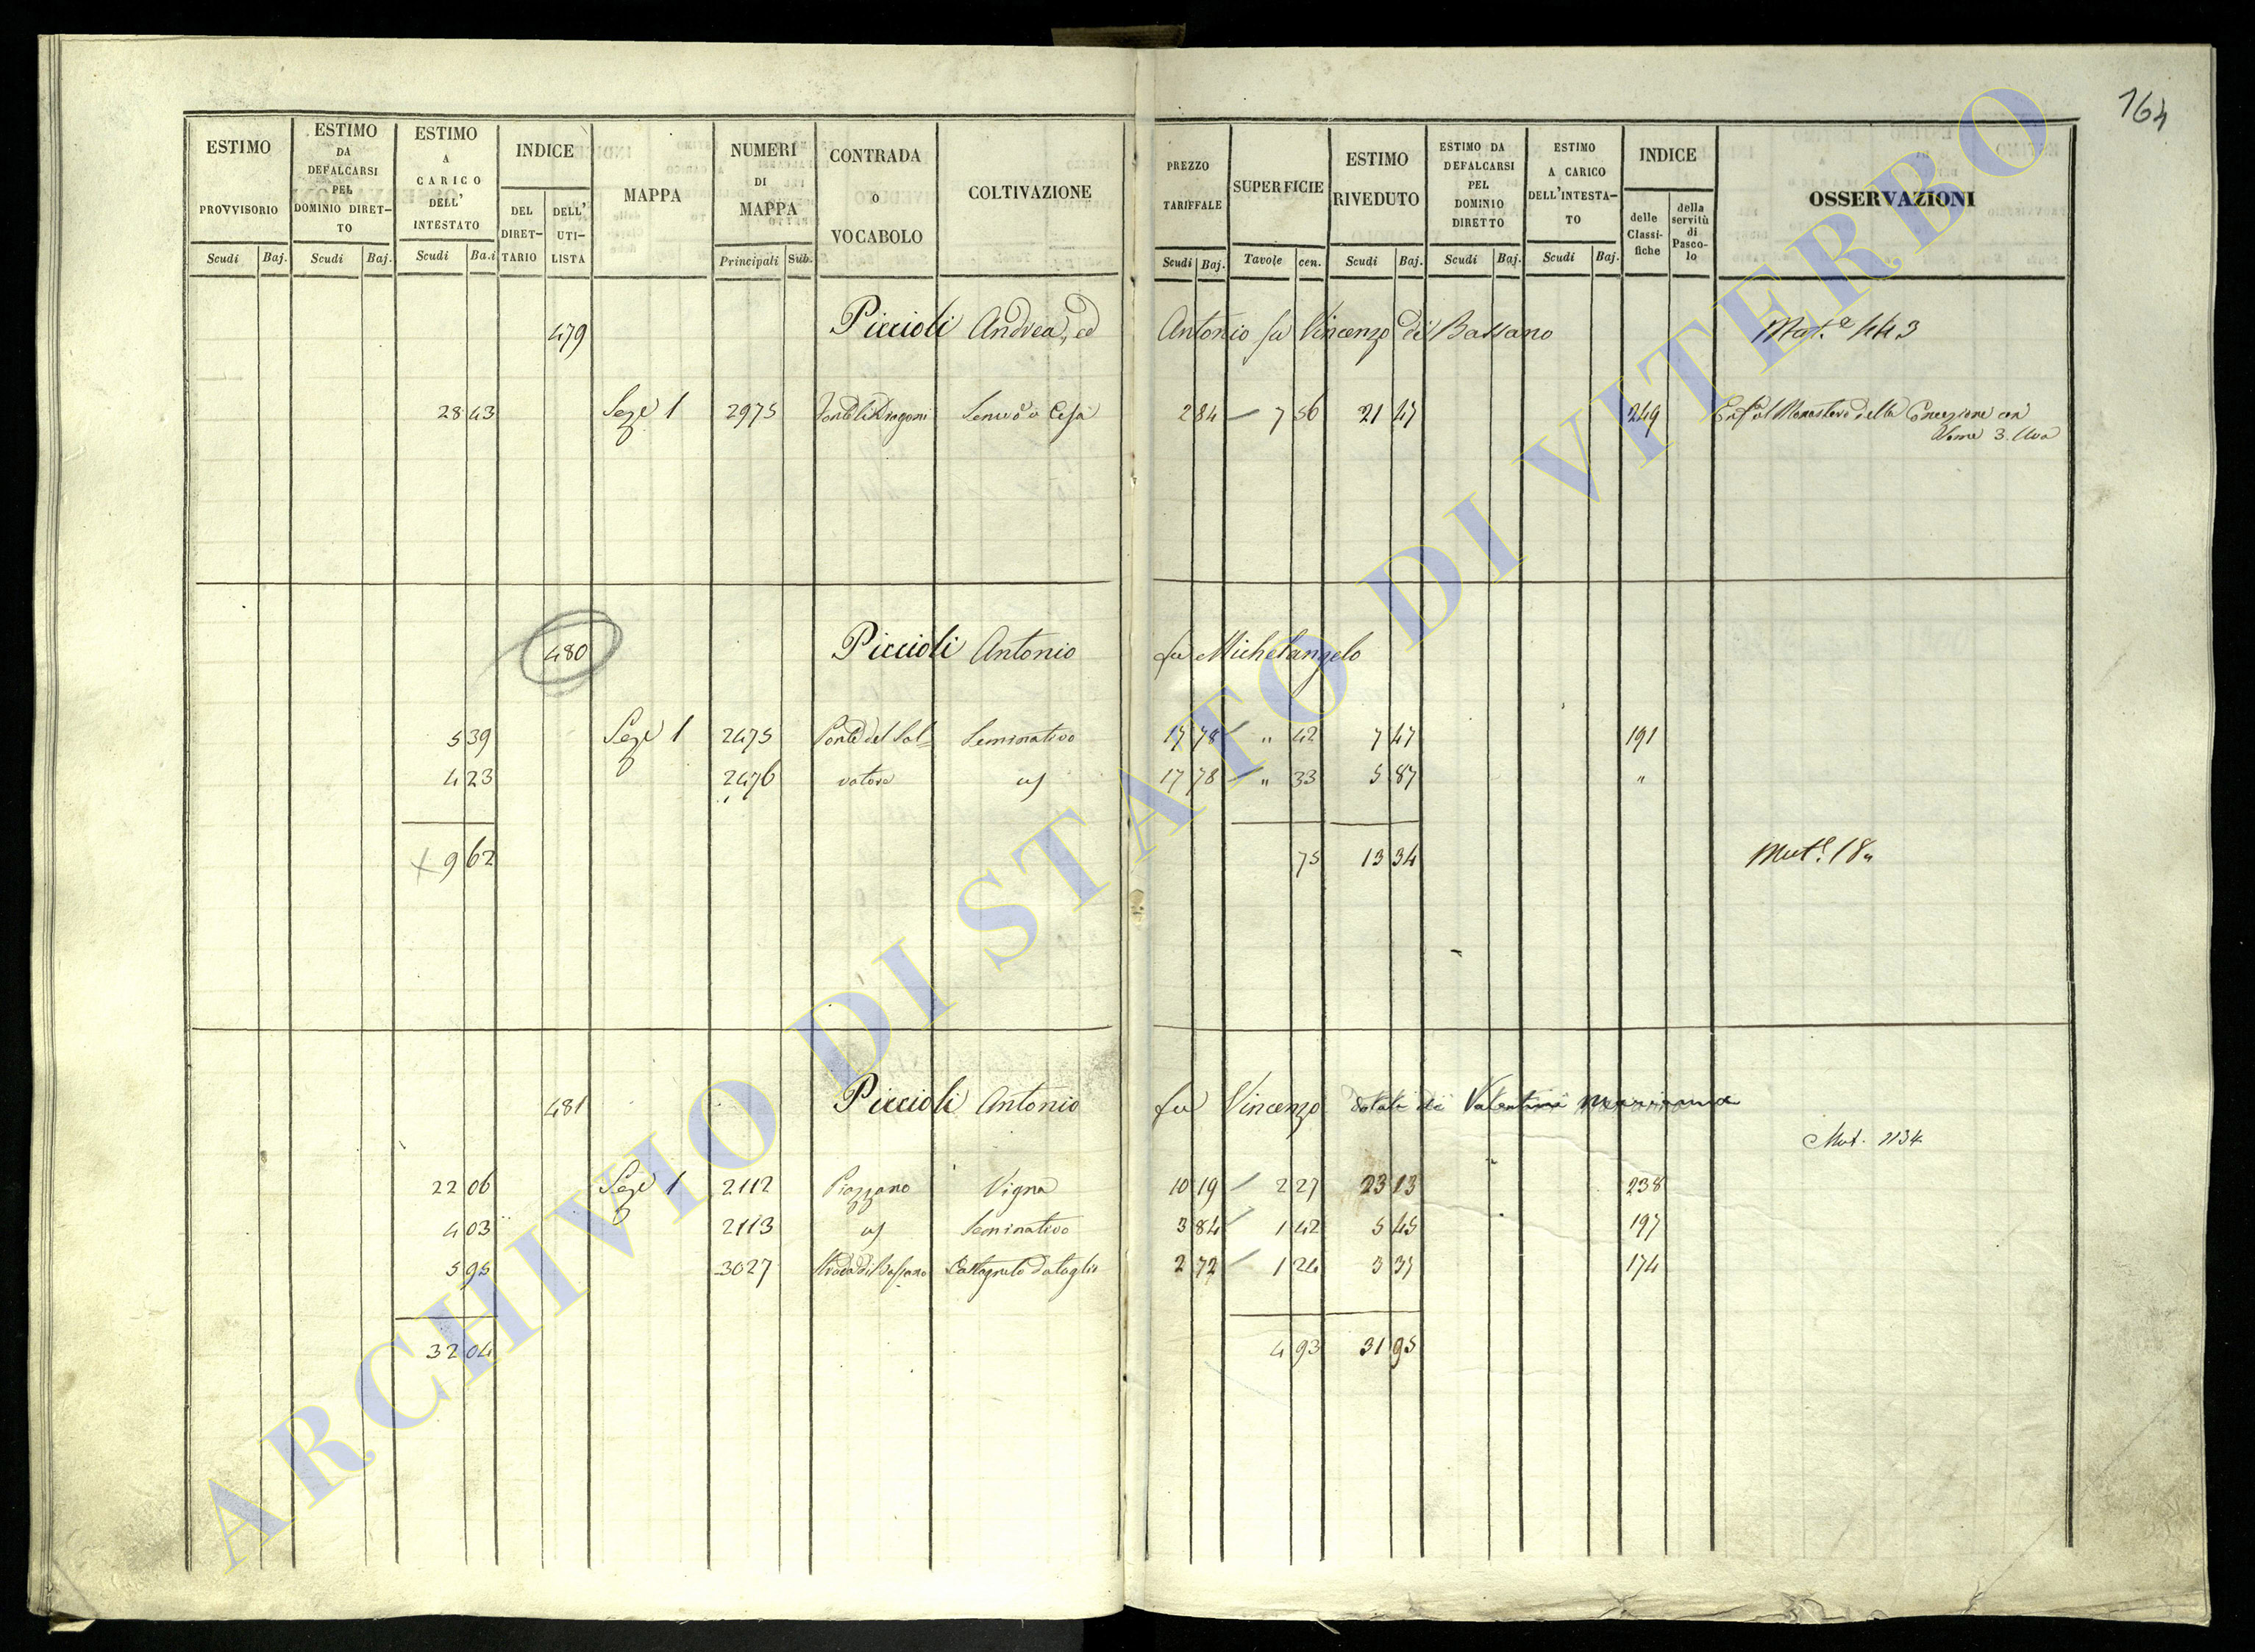 164
ESTIMO PROVVISORIO
ESTIMO DA DEFALCARSI PEL DOMINIO DIRET-TO
ESTIMO A CARICO DELL' INTESTATO
INDICE
DEL DIRET-TARIO
DELL' UTI-LISTA
MAPPA
NUMERI DI MAPPA
CONTRADA o VOCABOLO
COLTIVAZIONE
PREZZO TARIFFALE
SUPERFICIE
ESTIMO RIVEDUTO
ESTIMO DA DEFALCARSI PEL DOMINIO DIRETTO
ESTIMO A CARICO DELL'INTESTA-TO
INDICE
delle Classi-fiche
della servitù di Pasco-lo
OSSERVAZIONI
Scudi Baj. Scudi Baj. Scudi Ba.i Principali Sub. Scudi Baj. Tavole cen. Scudi Baj. Scudi Baj. Scudi Baj.
479 Piccioli Andrea, ed Antonio fu Vincenzo di Bassano
28 43 Seze 1 2975 2 84 7 56 21 47 249 Monastero della Concezione con
3. Uva
480 Piccioli Antonio fu Michelangelo
5 39 Seze 1 2475 Ponte del Sal= Seminativo 17 78 " 42 7 47 191
4 23 2476 vatore 17 78 " 33 5 87 "
9 62 75 13 34 Mut.e 18"
481 Piccioli Antonio fu Vincenzo dotali di Valentini Marianna
Mut. 1134
22 06 Seze 1 2112 Piazzano Vigna 10 19 2 27 23 13 238
4 03 2113 Seminativo 3 84 1 42 5 45 197
5 95 3027 Strada di Bassano Castagneto da taglio 2 72 1 24 3 37 174
32 04 4 93 31 95
ARCHIVIO DI STATO DI VITERBO